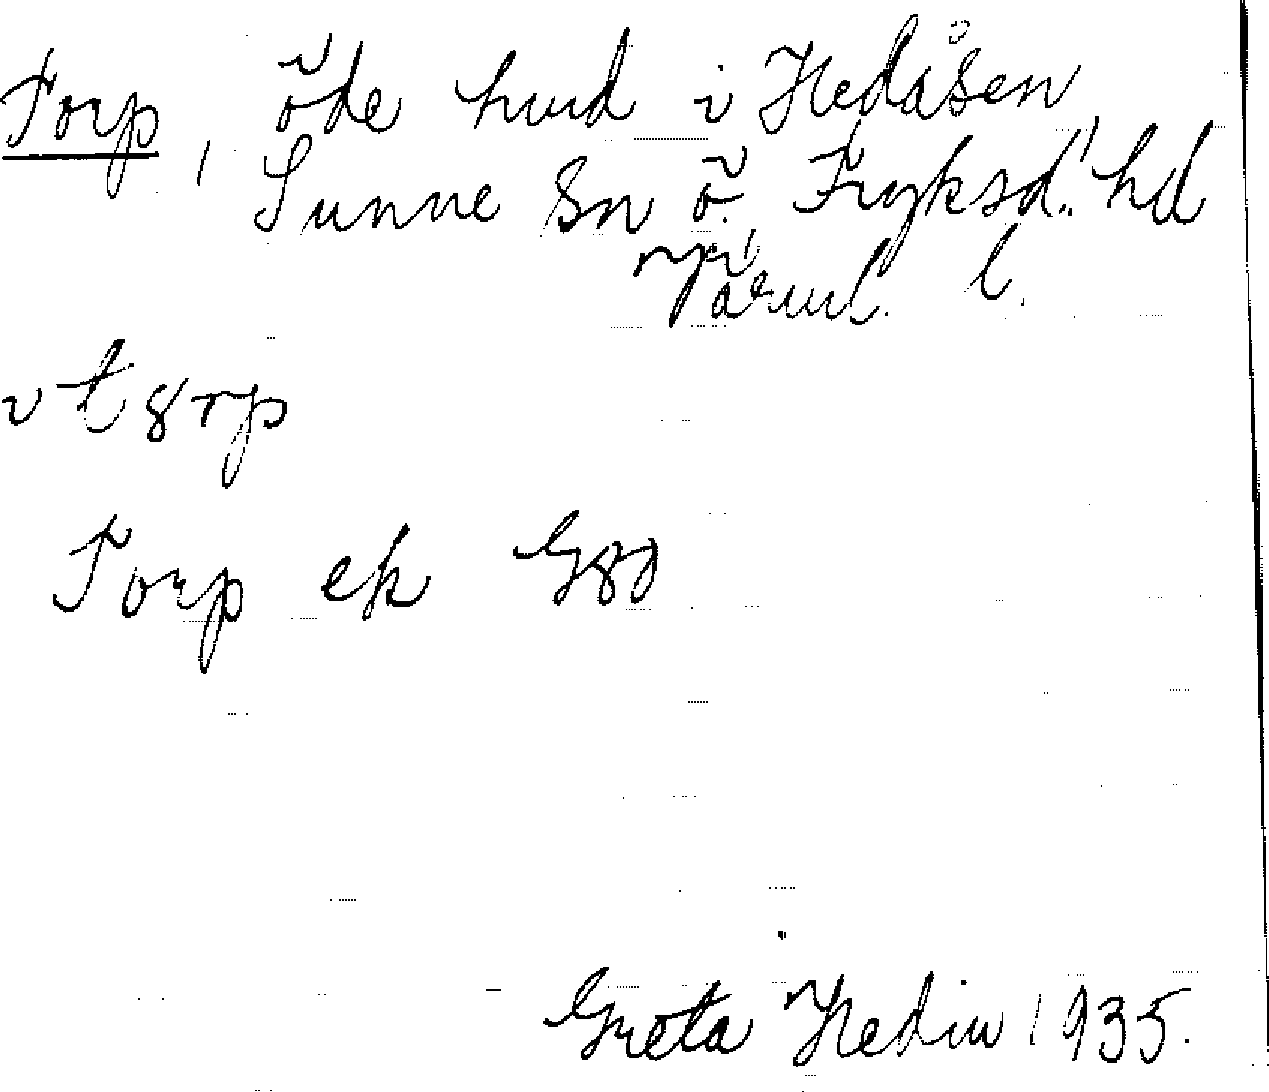 Torp, öde hmd i Hedåsen,
Sunne sn Ö. Fryksd. hd
Värml. l.
Torp ek G89
Greta Hedin 1935.